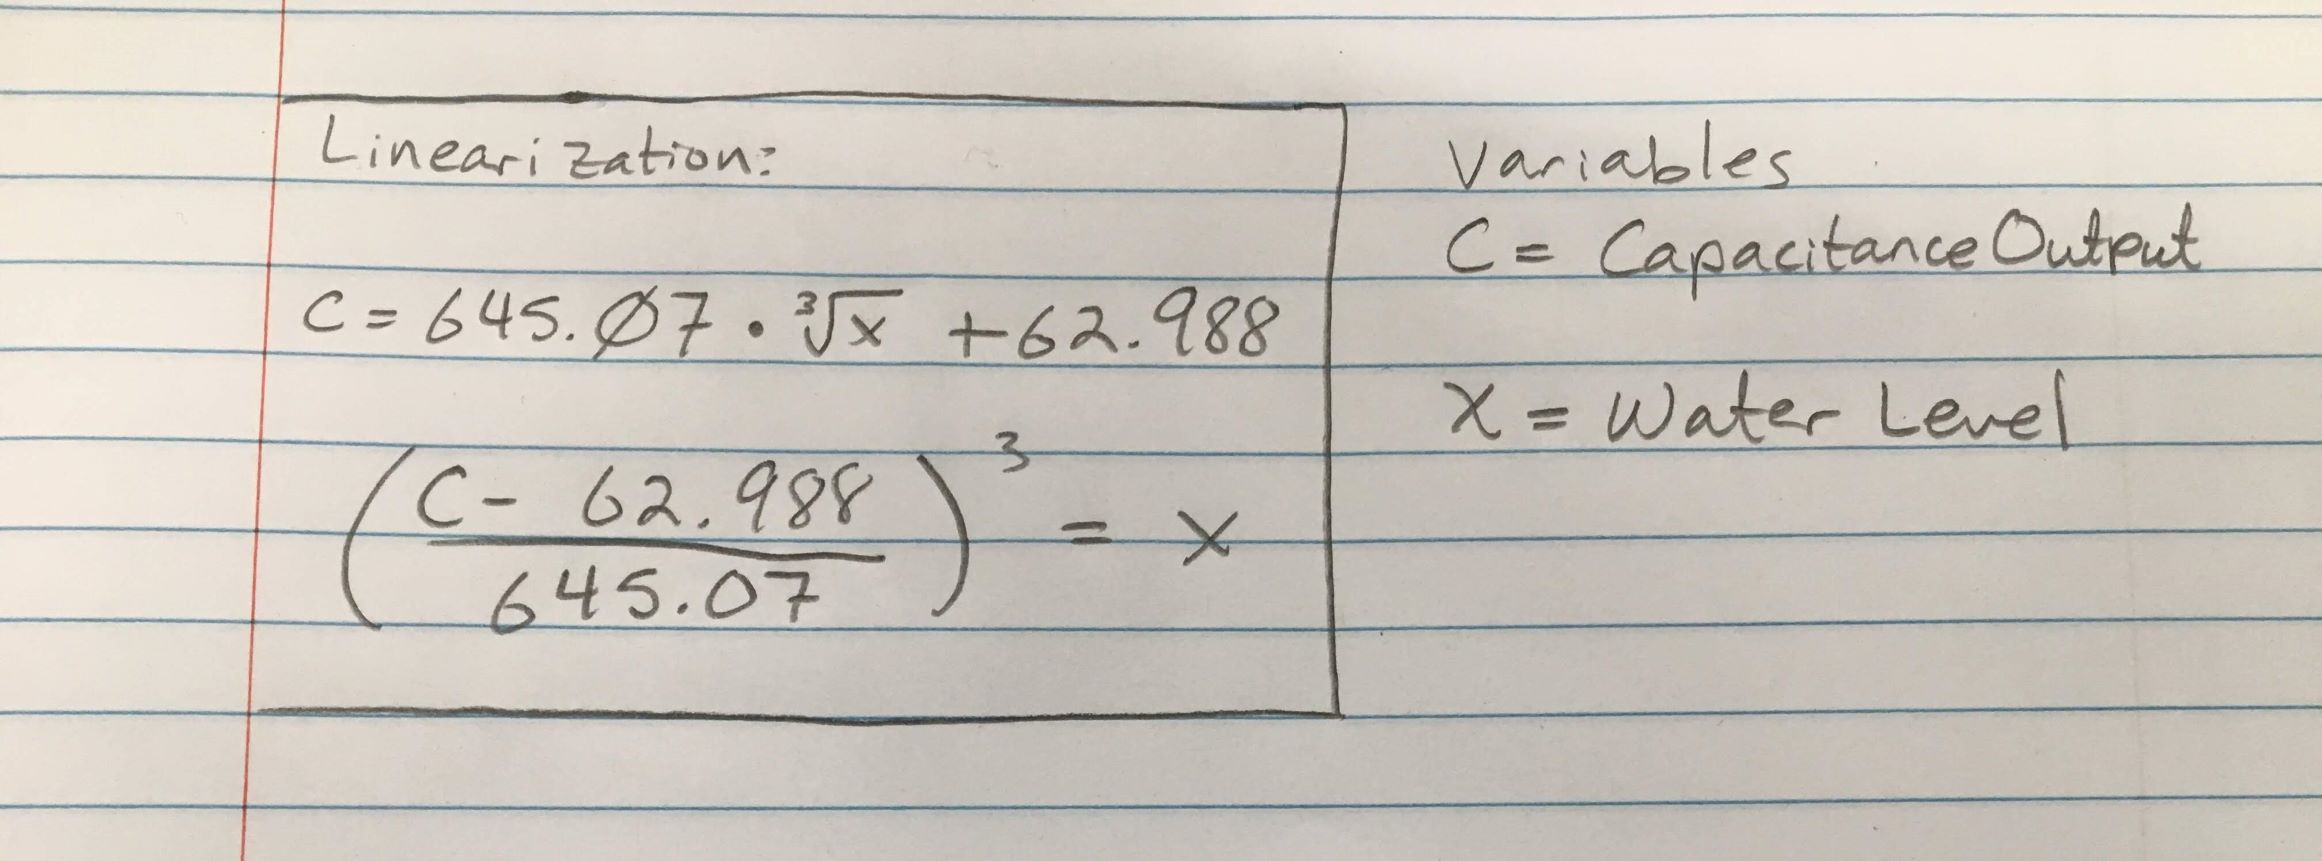 Linearization:
C = 645.Ø7 · ∛x + 62.988
(C - 62.988 / 645.07)³ = x
Variables
C = Capacitance Output
X = Water Level